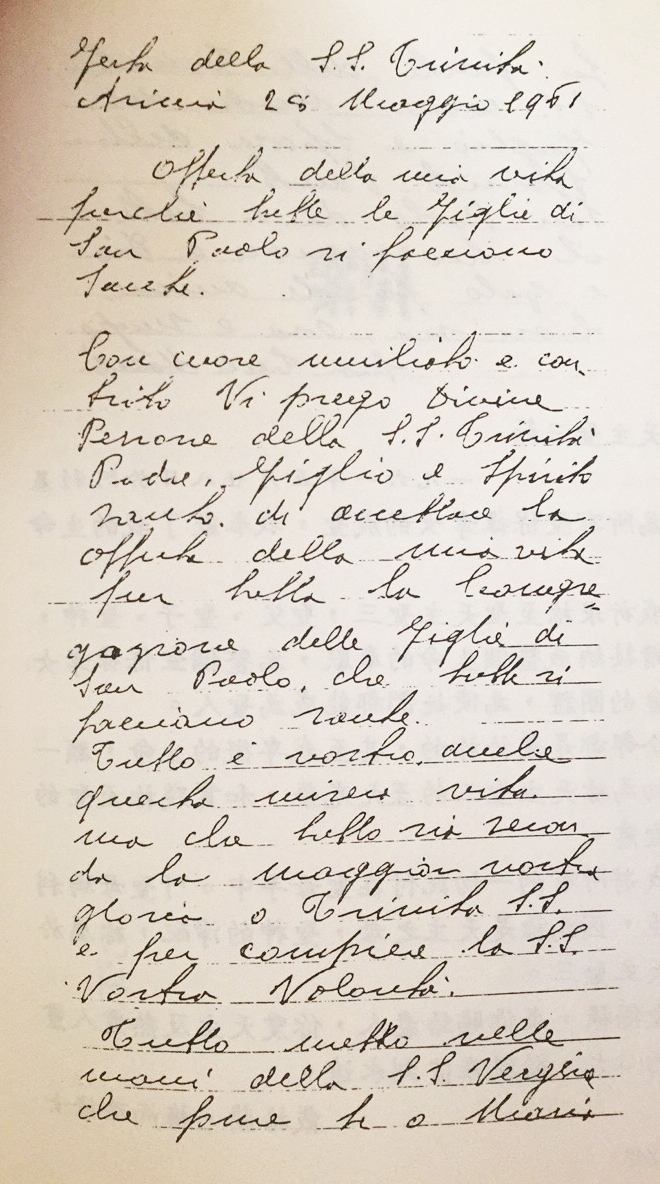 Festa della S.S. Trinità.
Ariccia 28 Maggio 1961
Offerta della mia vita
perchè tutte le Figlie di
San Paolo si facciano
Sante.
Con cuore umiliato e con-
trito Vi prego Divine
Persone della S.S. Trinità
Padre, Figlio e Spirito
santo. di accettare la
offerta della mia vita
per tutta la Congre=
gazione delle Figlie di
San Paolo, che tutte si
facciano sante.
Tutto è vostro anche
questa misera vita.
ma che tutto sia secon-
do la maggior vostra
gloria o Trinità S.S.
e per compiere la S.S.
Vostra Volontà.
Tutto metto nelle
mani della S.S. Vergine
che pure tu o Maria